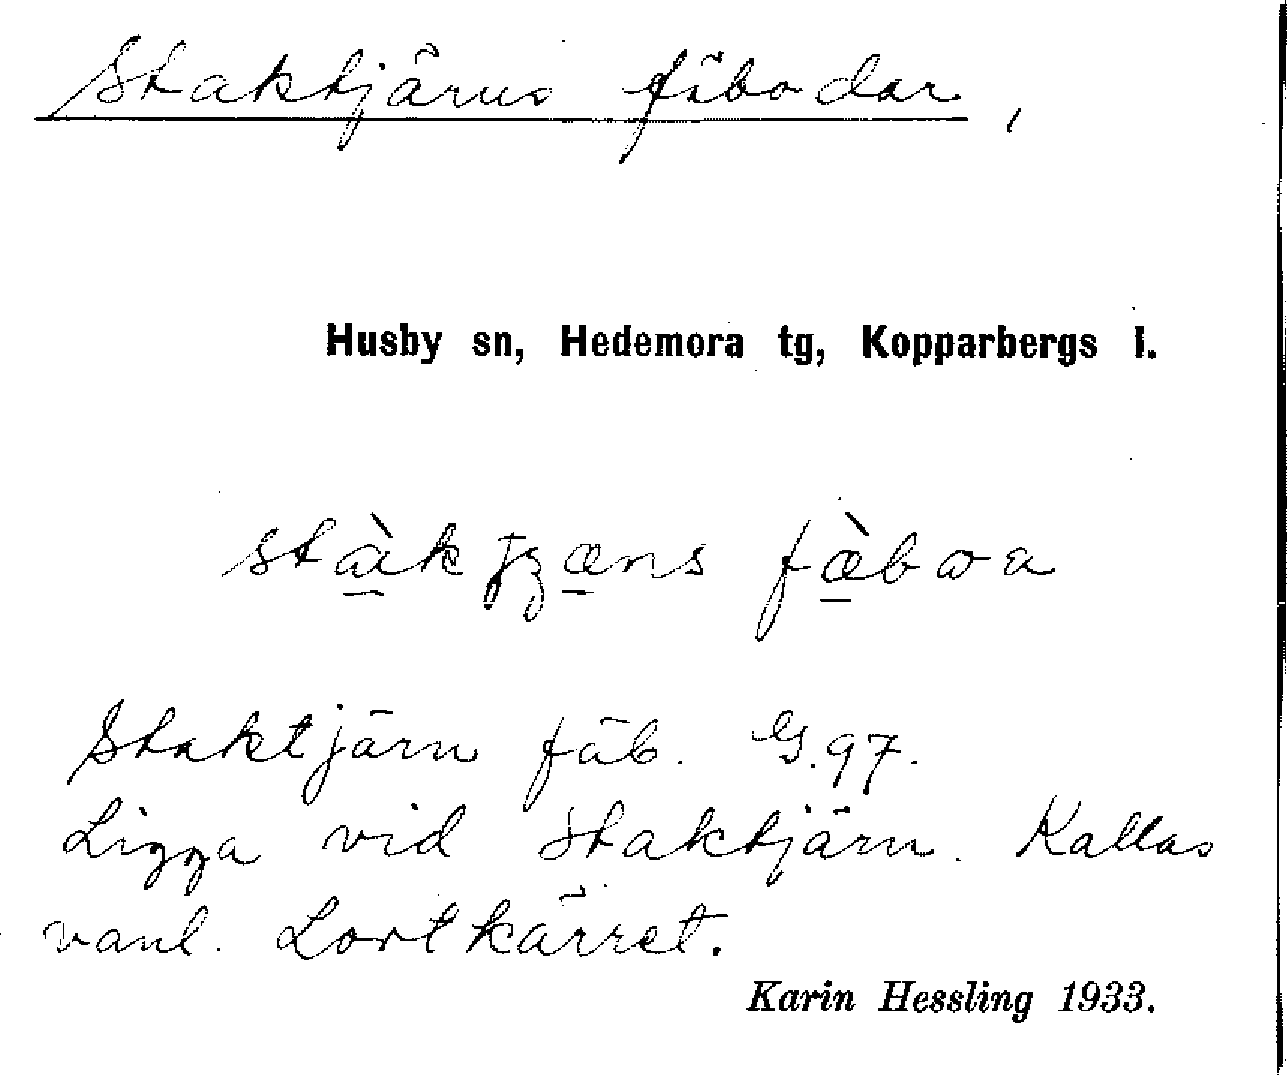 Staktjärns fäbodar,
Husby sn, Hedemora tg, Kopparbergs l.
stàk ȷʒæns fæ̀bωa
Staktjärn fäb. G. 97.
Ligga vid Staktjärn. Kallas
vanl. Lortkärret.
Karin Hessling 1933.